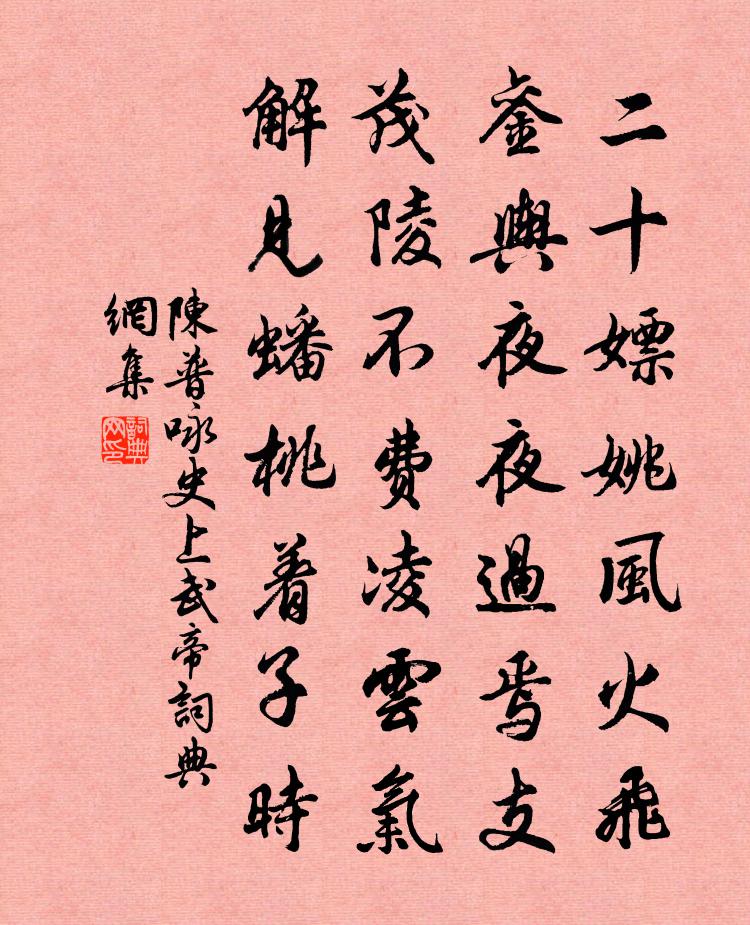 二十嫖姚風火飛
鑾輿夜夜過焉支
茂陵不費凌雲氣
解見蟠桃着子時
陳普咏史上武帝詞典
網集
詞典網印